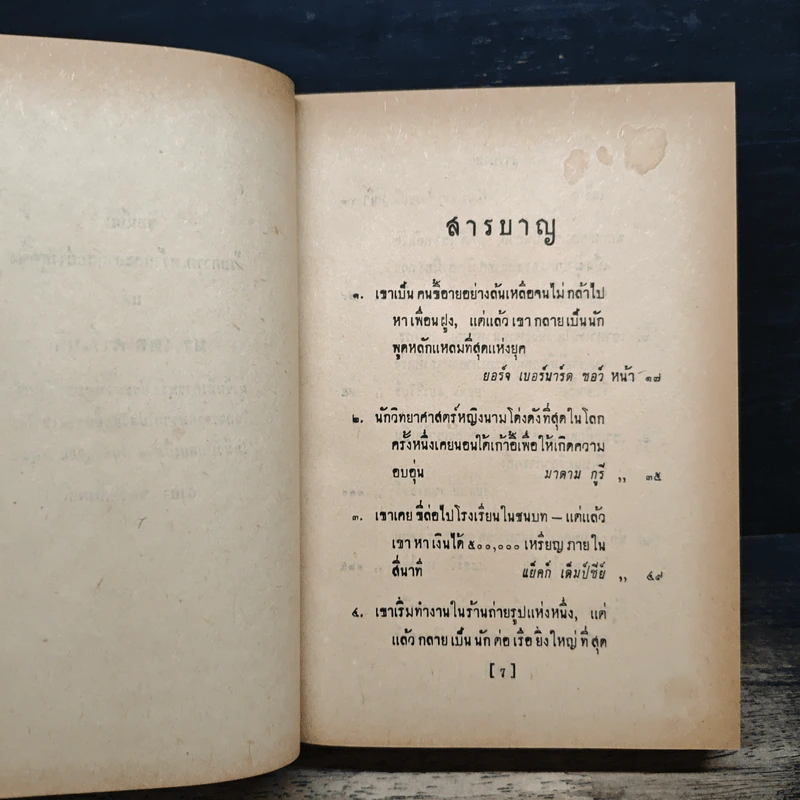 สารบาญ
๑. เขาเป็นคนขี้อายอย่างล้นเหลือจนไม่กล้าไป
หาเพื่อนฝูง, แต่แล้วเขากลายเป็นนัก
พูดหลักแหลมที่สุดแห่งยุค
ยอร์จ เบอร์นาร์ด ชอว์ หน้า ๑๗
๒. นักวิทยาศาสตร์หญิงนามโด่งดังที่สุดในโลก
ครั้งหนึ่งเคยนอนใต้เก้าอี้เพื่อให้เกิดความ
อบอุ่น มาดาม กูรี ,, ๓๕
๓. เขาเคยขี่ล่อไปโรงเรียนในชนบท – แต่แล้ว
เขาหาเงินได้ ๕๐๐,๐๐๐ เหรียญภายใน
สี่นาที แย็คก์ เด็มป์ซีย์ ,, ๔๙
๔. เขาเริ่มทำงานในร้านถ่ายรูปแห่งหนึ่ง, แต่
แล้วกลายเป็นนักต่อเรือยิ่งใหญ่ที่สุด
[ 7 ]